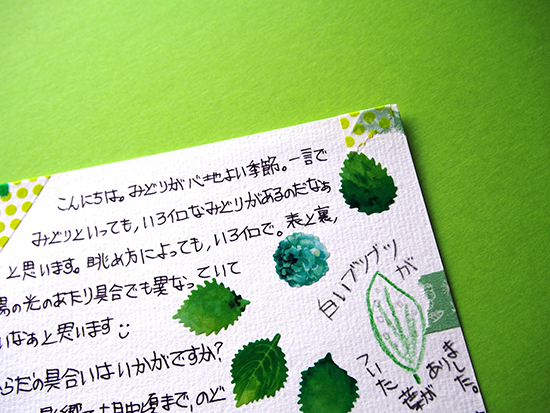 こんにちは。みどりが心地よい季節。一言で
みどりといっても、いろイロなみどりがあるのだなぁ
と思います。眺め方によっても、いろイロで。表と裏,
陽の光のあたり具合でも異なっていて
いなぁと思います
らだの具合いはいかがですか?
影郷で
月中頃まで、のど
白いブツブツ
が
ついた葉が
ありました。